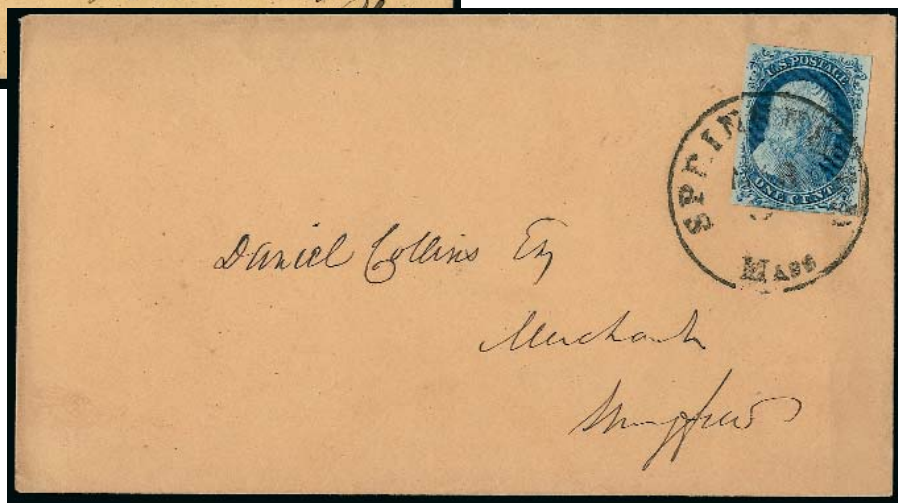 U.S. POSTAGE
ONE CENT
SPRINGFIELD
MASS
Daniel Collins Esq
Merchant
Springfield